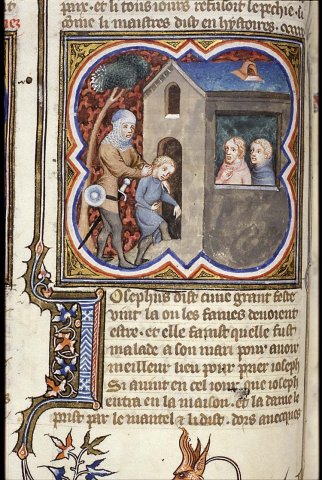 pare. et li tous iours refusoit le pechie. si
come li maistres dist en hystoires.
Iosephus dist cune grant feste
vint la ou les fames devoient
estre. et elle fainst quelle fust
malade a son mari pour avoir
meilleur lieu pour prier ioseph
Si avint en cel iour que ioseph
entra en la maison. et la dame le
prist par le mantel et li dist. dors avecques